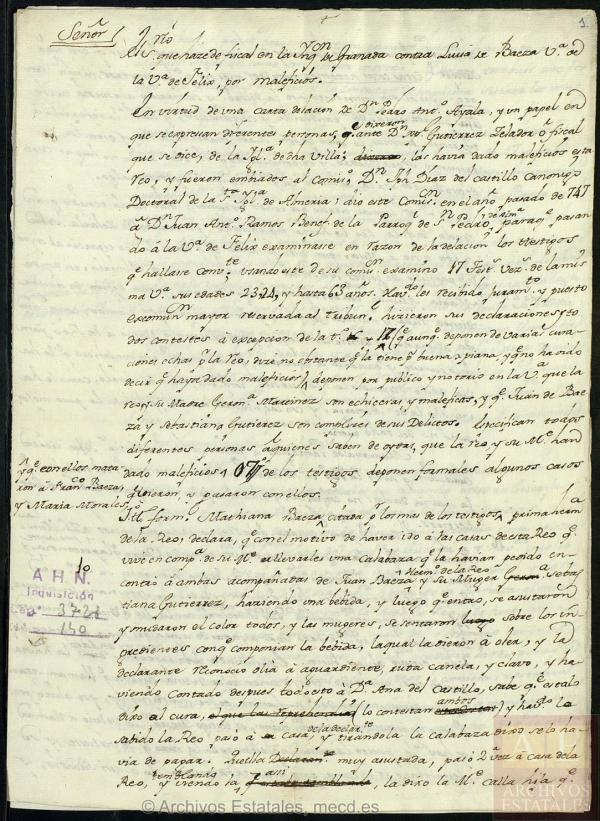 1
Señor
El S.r que haze de fiscal en la Inq.on de Granada contra Lucia de Baeza V.ª de
la V.ª de Felix, por maleficios.
En virtud de una carta delacion de D.n Pedro Ant.º Ayala, y un papel en
que se expresan diferentes personas, q.e dixeron ante D.n Gutierrez Zelador ô fiscal
que se dice, de la Igl.ª de dha Villa, las havia dado maleficios esta
reo, y fueron embiados al Comis.º D.n Diaz del castillo Canonigo
Doctoral de la S.ta Igl.ª de Almeria: dio este Comis.n en el año pasado de 747
â D.n Juan Ant.º Ramos Benef.do de la Parroq.l de S.n Pedro paraq.e pasan
do â la V.ª de Felix examinase en razon de la delacion los testigos
q.e hallase usando este de su comis.n examino 17 test.s vez.s de la mis
ma V.ª sus edades 23, 24, y hasta 63 años. Hav.do les recibido juram.to y puesto
excomun.n mayor reservada al tribun.l hizieron sus declaraciones, y to
dos contestes â excepcion de la t.º y 12 (q.e aunq.e deponen de varias cura
ciones echas p.r la reo, dize no obstante q.e la tiene p.r buena xpiana, y q.e no ha oido
decir q.e haya dado maleficios) deponen por publico y notorio en la V.ª que la
reo, y su Madre Geron.ª Martinez son echiceras, y maleficas, y q.e Juan de Bae
za y Sebastiana Gutierez son complices de sus Delictos. Especifican todos
diferentes personas aquienes saben de oydas, que la reo y su M.e han
dado maleficios, 07 de los testigos deponen formales algunos casos
q.e vieron, y pasaron con ellos.
y q.e con ellos mata
ron â Fran.co Baeza,
y Maria Morales
1º
Mathiana Baeza citada p.r los mas de los testigos, prima herm.ª
de la Reo, declara, q.e con el motivo de haver ido â las casas de esta Reo q.e
vive en comp.ª de su M.e allevarles una calabaza q.e la havian pedido en
contrô â ambas acompañadas de Juan Baeza Herm.º de la Reo y su Muger Seba
tiana Gutierrez, haziendo una bebida, y luego q.e entro, se asustaron
y mudaron el color todos, y las mugeres, se sentaron sobre los in
gredientes conq.e componian la bebida, laqual la dieron â oler, y la
declarante reconocio olia â aguardiente, ruda canela, y clavo, y ha
viendo contado despues todo esto â D.ª Ana del Castillo, sabe q.e esta lo
dixo al cura, (lo contestan ambos) y hav.do lo
sabido la Reo pasô â casa, de la declar.te y tirandola la calabaza dixo se lo ha
via de pagar. muy asustada, pasó 2.ª vez â casa de la
Reo, y viendo la, la dixo la M.e calla hija q.e
A H N.
Inquisición
3721
140
© Archivos Estatales, mecd.es
ARCHIVOS
ESTATALES